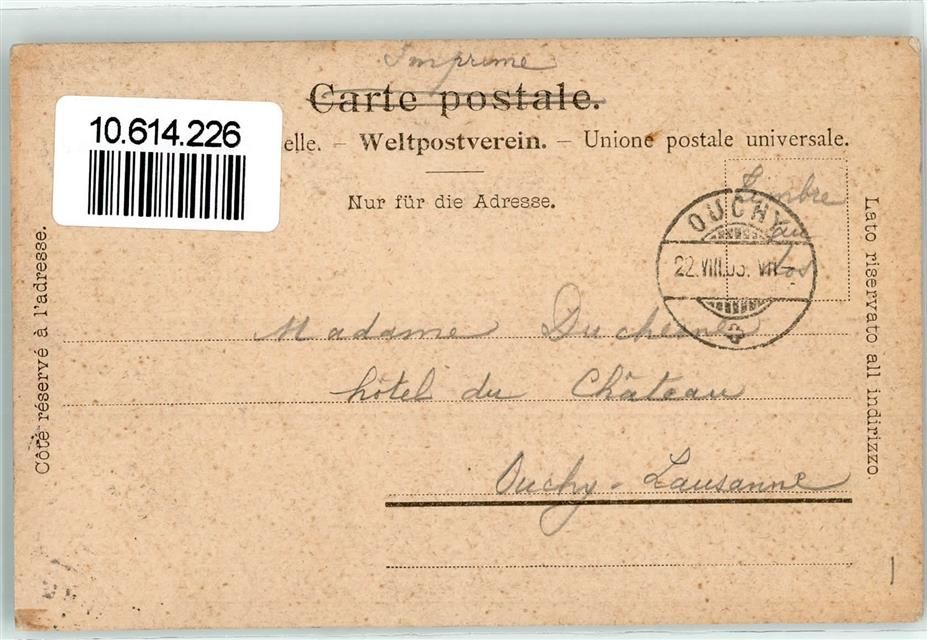 Imprimé
Carte postale.
10.614.226
elle. – Weltpostverein. – Unione postale universale.
Nur für die Adresse.
Timbre
au
dos
OUCHY
22.VIII.03. VII
Côté réservé à l'adresse.
Lato riservato all indirizzo.
Madame Duchesne
hôtel du Château
Ouchy - Lausanne